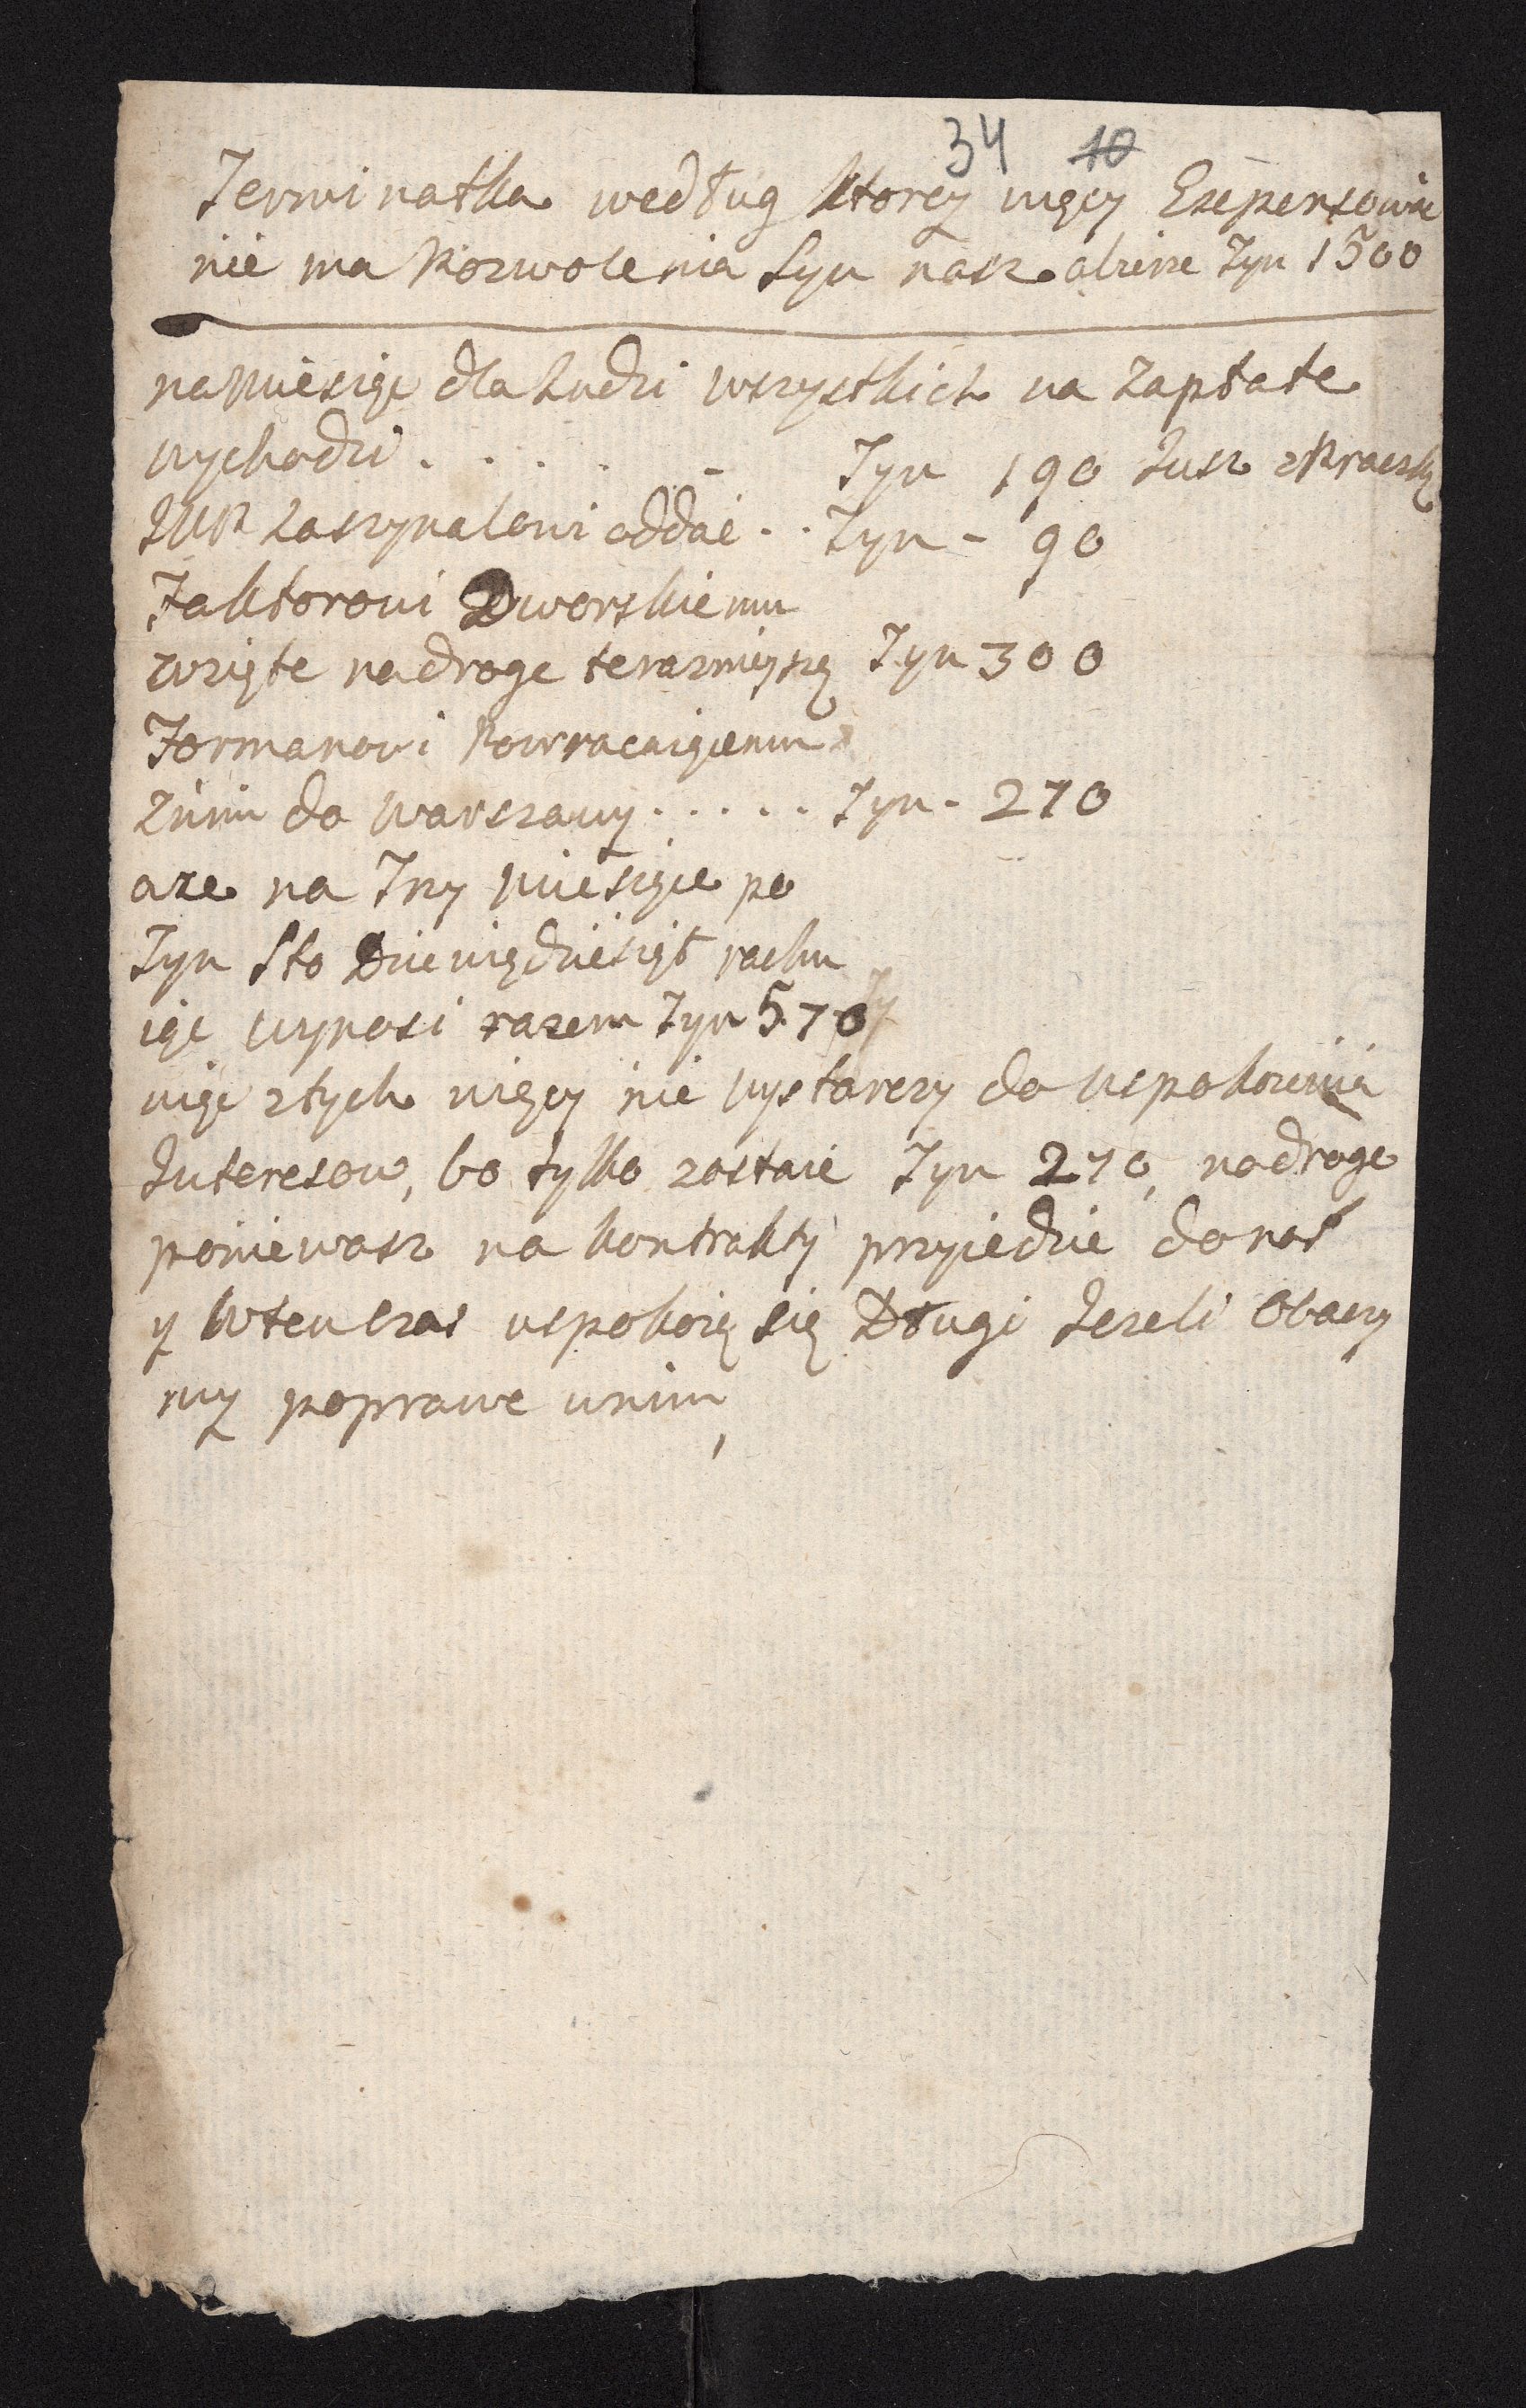 34 10
Terminatka według ktorey więcy Exspensowac
nie ma Pozwolenia Syn nasz Tyn 1500
na Miesiąc dla Ludzi wszystkich na Zapłate
wychodzi . . . . . - Tyn 190 Jusz
oddać . . Tyn - 90
Faktorowi Dworskiemu
wzięte na droge terazniejszą Tyn 300
Formanowi Powracaiącemu
Znim do Warszawy . . . . . Tyn - 270
aze na Trzy Miesiące po
Tyn Sto Dziewiędziesiąt rachu
iąc wynosi razem Tyn 570
więc ztych więcy nie wystarczy do uspokoienia
Interesow, bo tylko zostaie Tyn 270, na droge
poniewasz na kontrakty przyiedzie do nas
y Wten czas uspokoią się Długi Jezeli Obaczy
my poprawe wnim,